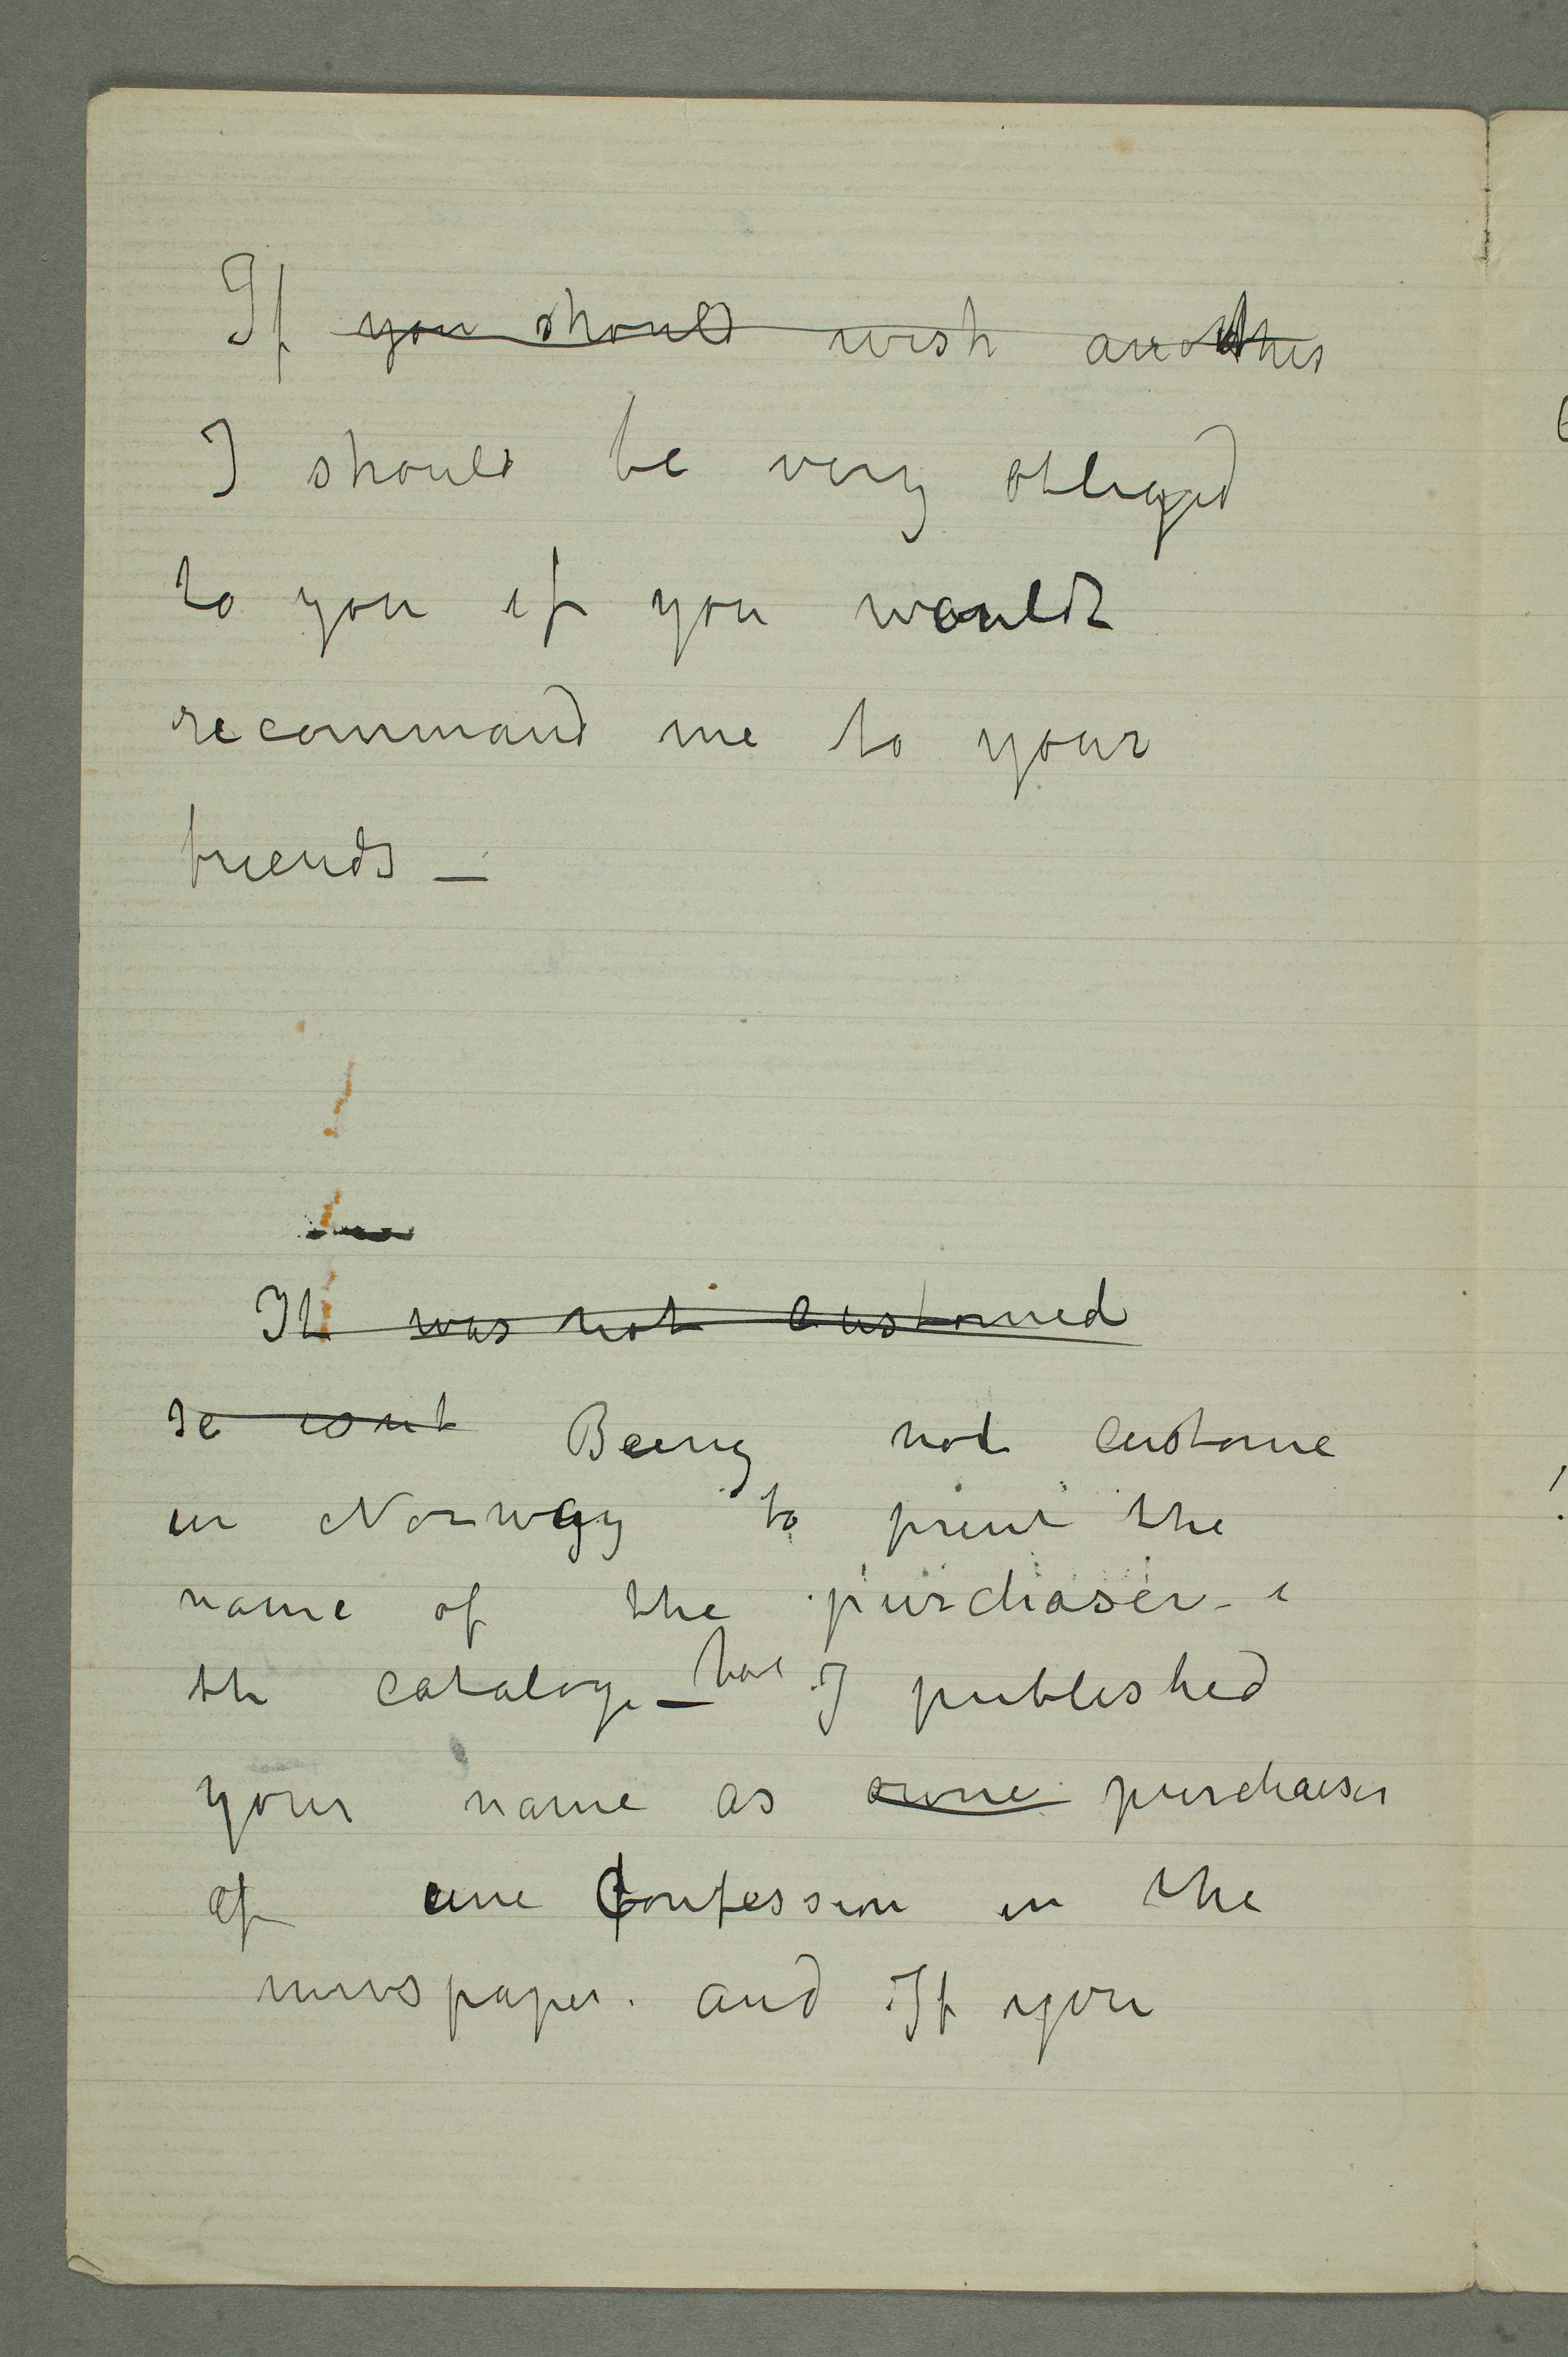 If you should wish another
I should be very obliged
to you if you would
recommand me to your
friends —
It was not customed
Being not custome
in Norway to print the
name of the purchaser - i
th catalog — have I published
your name as purchaser
of une Confession in the
newspaper. and If you